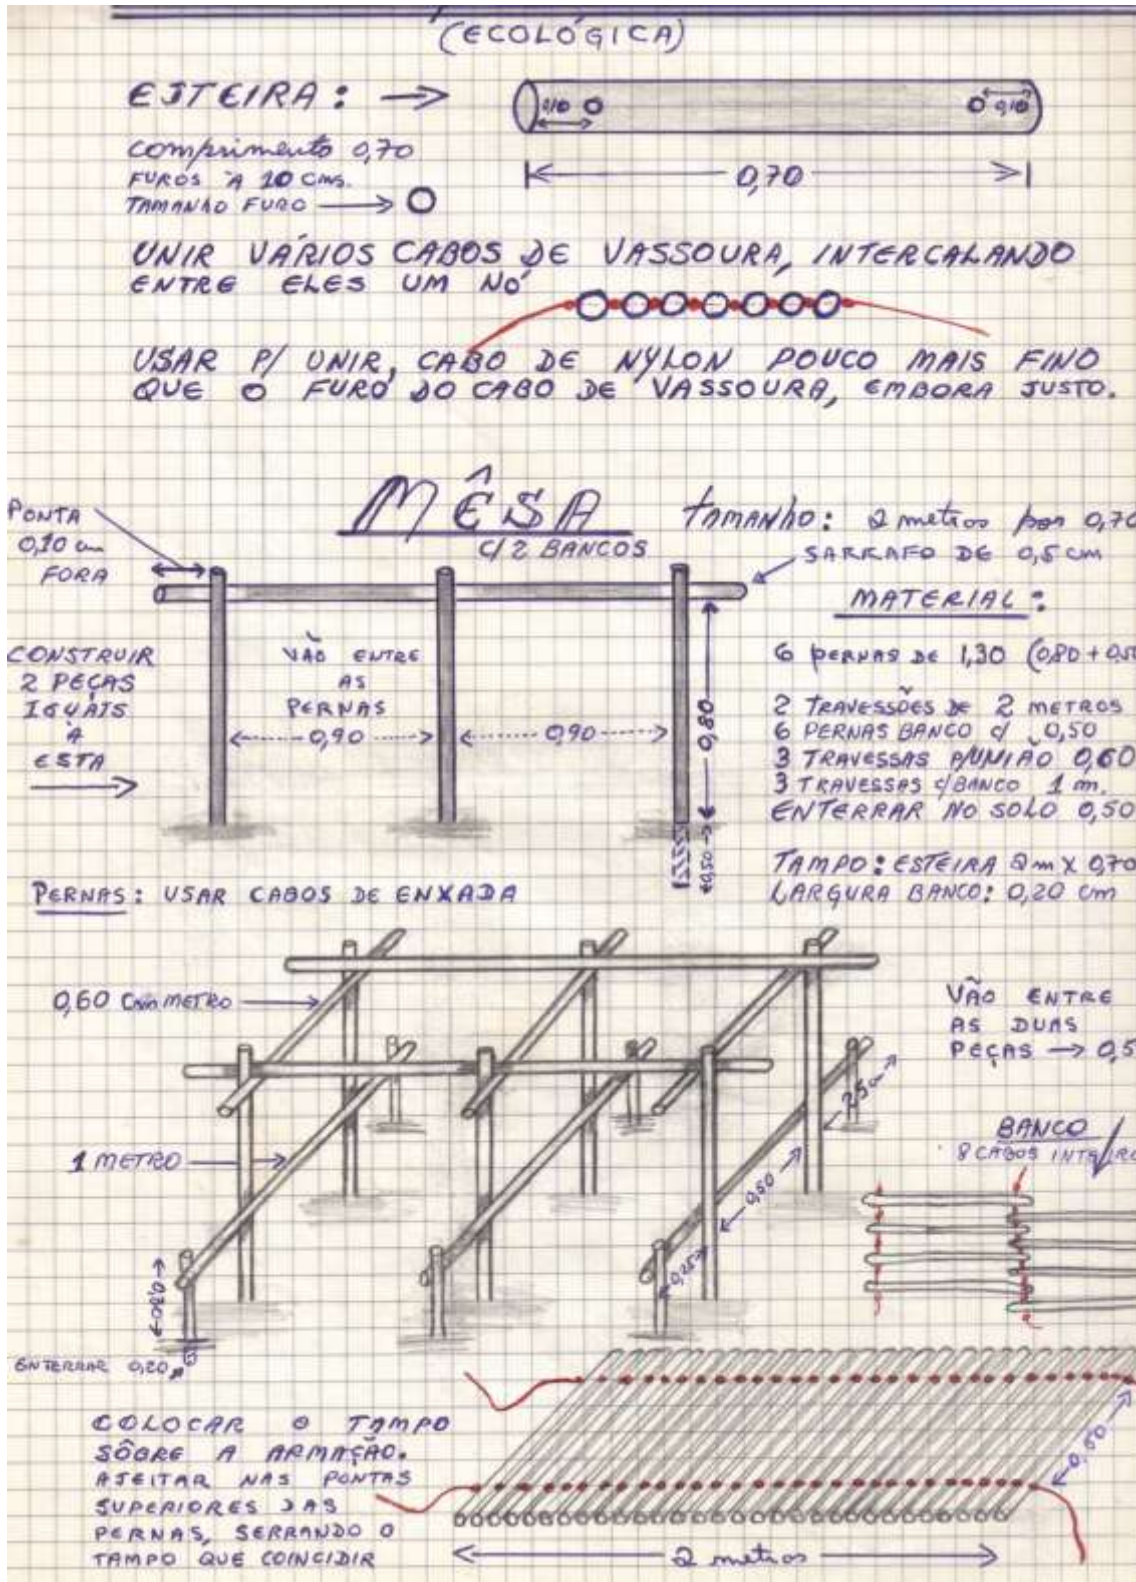 (ECOLÓGICA)
ESTEIRA: →
0,10
0,10
comprimento 0,70
FUROS A 10 Cms.
TAMANHO FURO → O
0,70
UNIR VÁRIOS CABOS DE VASSOURA, INTERCALANDO
ENTRE ELES UM NÓ
USAR P/ UNIR, CABO DE NYLON POUCO MAIS FINO
QUE O FURO DO CABO DE VASSOURA, EMBORA JUSTO.
MÊSA
C/2 BANCOS
TAMANHO: 2 metros por 0,70
SARRAFO DE 0,5 cm
PONTA
0,10 cm
FORA
MATERIAL:
CONSTRUIR
2 PEÇAS
IGUÁIS
A
ESTA
VÃO ENTRE
AS
PERNAS
0,90
0,90
0,80
0,50
6 PERNAS DE 1,30 (0,80 + 0,50
2 TRAVESSÕES DE 2 METROS
6 PERNAS BANCO c/ 0,50
3 TRAVESSAS P/UNIÃO 0,60
3 TRAVESSAS c/BANCO 1 m.
ENTERRAR NO SOLO 0,50
TAMPO: ESTEIRA 2m X 0,70
LARGURA BANCO: 0,20 cm
PERNAS: USAR CABOS DE ENXADA
0,60 METRO
VÃO ENTRE
AS DUAS
PEÇAS → 0,5
25 cm
1 METRO
0,50
0,25
0,30
ENTERRAR 0,20
BANCO
8 CABOS INTEIRO
COLOCAR O TAMPO
SÔBRE A ARMAÇÃO.
AJEITAR NAS PONTAS
SUPERIORES DAS
PERNAS, SERRANDO O
TAMPO QUE COINCIDIR
0,50
2 metros